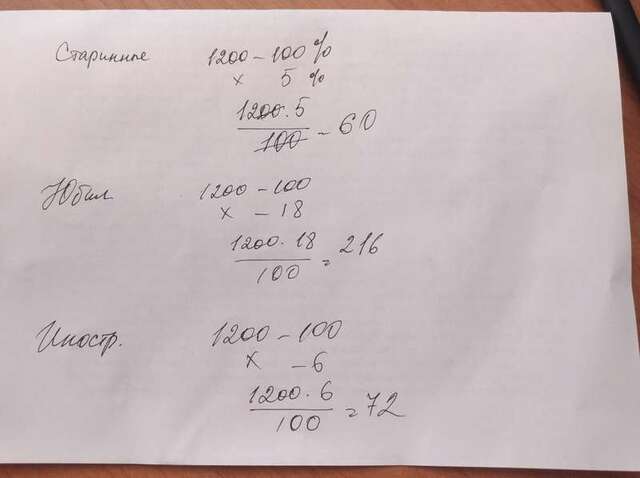 Старинные 1200 – 100 %
x 5 %
1200 · 5
100
– 60
Юбил 1200 – 100
x – 18
1200 · 18
100
= 216
Иностр. 1200 – 100
x – 6
1200 · 6
100
= 72